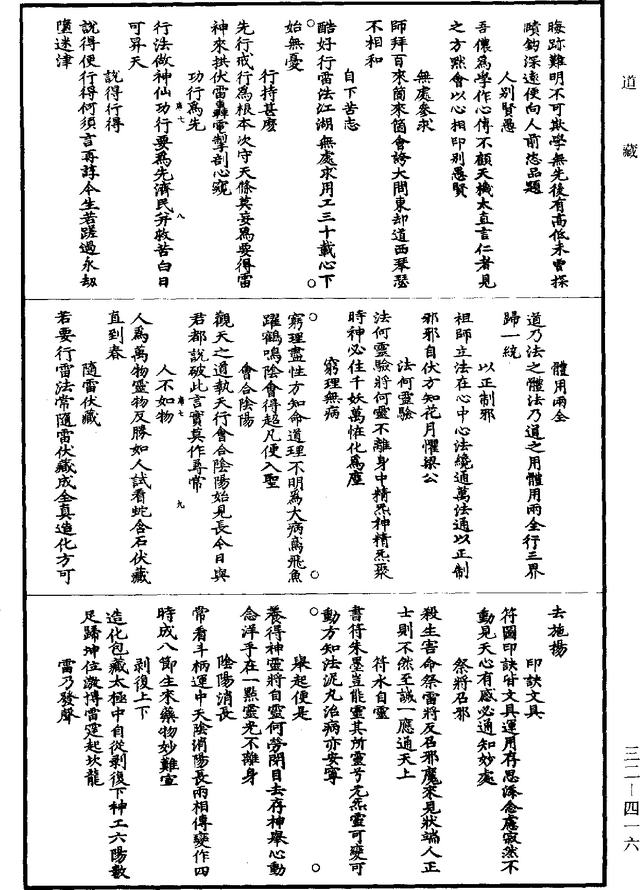 道藏
晦跡難明不可欺學無先後有高低未曾探
賾鈎深遠便向人前恣品題
人別賢愚
吾儂為學作心傳不顧天機太直言仁者見
之方黙會以心相印別愚賢
無處參求
師拜百來箇來箇會誇大問東却道西琴瑟
不相和
自下苦志
酷好行雷法江湖無處求用工三十載心下
始無憂
行持甚麽
先行戒行為根本次守天條莫妄為要得雷
神來拱伏雷轟電掣剖心窺
功行為先
行法做神仙功行要為先濟民并救苦白日
可昇天
說得行得
說得便行得何須言再諄今生若蹉過永劫
墮迷津
體用兩全
道乃法之體法乃道之用體用兩全行三界
歸一統
以正制邪
祖師立法在心中心法纔通萬法通以正制
邪邪自伏方知花月懼梁公
法何靈驗
法何靈驗將何靈不離身中精炁神精炁聚
時神必住千妖萬恠化為塵
窮理無病
窮理盡性方知命道理不明為大病鳶飛魚
躍鶴鳴陰會得超凡便入聖
會合陰陽
觀天之道執天行會合陰陽始見長今日與
君都說破此言實莫作尋常
人不如物
人為萬物靈物反勝如人試看蛇含石伏藏
直到春
隨雷伏藏
若要行雷法常隨雷伏藏成全真造化方可
去施揚
印訣文具
符圖印訣皆文具運用存思添念慮寂然不
動見天心有感必通知妙處
祭將召邪
殺生害命祭雷將反召邪魔來見狀端人正
士則不然至誠一應通天上
符水自靈
書符朱墨豈能靈其所靈兮元炁靈可變可
動方知法泥丸治病亦安寧
舉起便是
養得神靈將自靈何勞閉目去存神舉心動
念洋乎在一點靈光不離身
陰陽消長
常看斗柄運中天陰消陽長兩相傳變作四
時成八節生來藥物妙難宣
剥復上下
造化包藏太極中自從剥復下神工六陽數
足歸坤位激愽雷霆起坎龍
雷乃發聲
三二—四一六